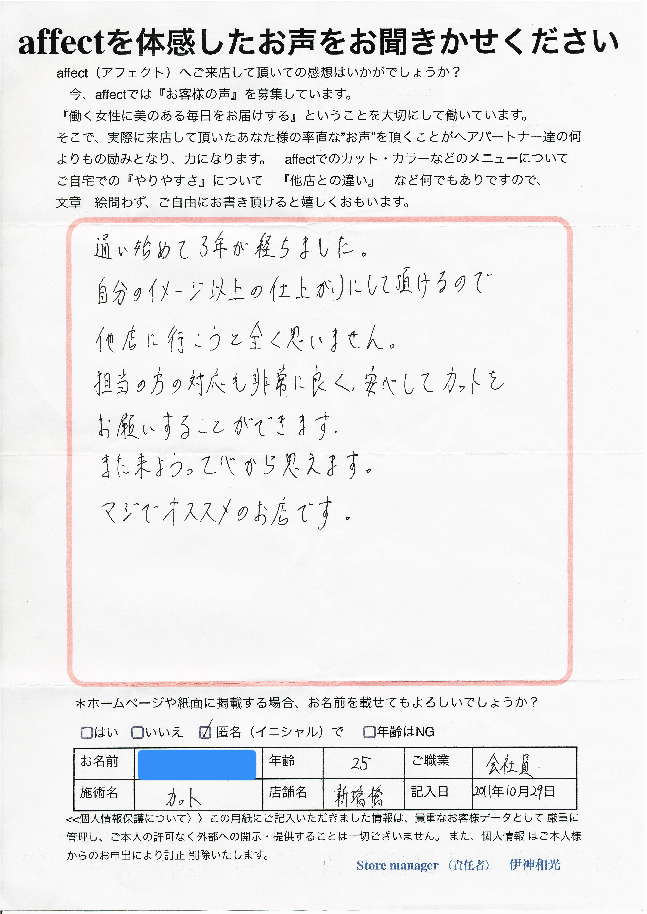 affectを体感したお声をお聞きかせください
affect（アフェクト）へご来店して頂いての感想はいかがでしょうか？
今、affectでは『お客様の声』を募集しています。
『働く女性に美のある毎日をお届けする』ということを大切にして働いています。
そこで、実際に来店して頂いたあなた様の率直な"お声"を頂くことがヘアパートナー達の何
よりもの励みとなり、力になります。 affectでのカット・カラーなどのメニューについて
ご自宅での『やりやすさ』について 『他店との違い』 など何でもありですので、
文章 絵問わず、ご自由にお書き頂けると嬉しくおもいます。
通い始めて3年が経ちました。
自分のイメージ以上の仕上がりにして頂けるので
他店に行こうと全く思いません。
担当の方の対応も非常に良く、安心してカットを
お願いすることができます.
また来ようって心から思えます。
マジでオススメのお店です。
＊ホームページや紙面に掲載する場合、お名前を載せてもよろしいでしょうか？
□はい □いいえ ☑匿名（イニシャル）で □年齢はNG
お名前 年齢 25 ご職業 会社員
施術名 カット 店舗名 新瑞橋 記入日 2011年10月29日
<<個人情報保護について〉〉この用紙にご記入いただきました情報は、貴重なお客様データとして 厳重に
管理し、ご本人の許可なく外部への開示・提供することは一切ございません。また、個人情報はご本人様
からのお申出により訂正 削除いたします。
Store manager （責任者） 伊神和光